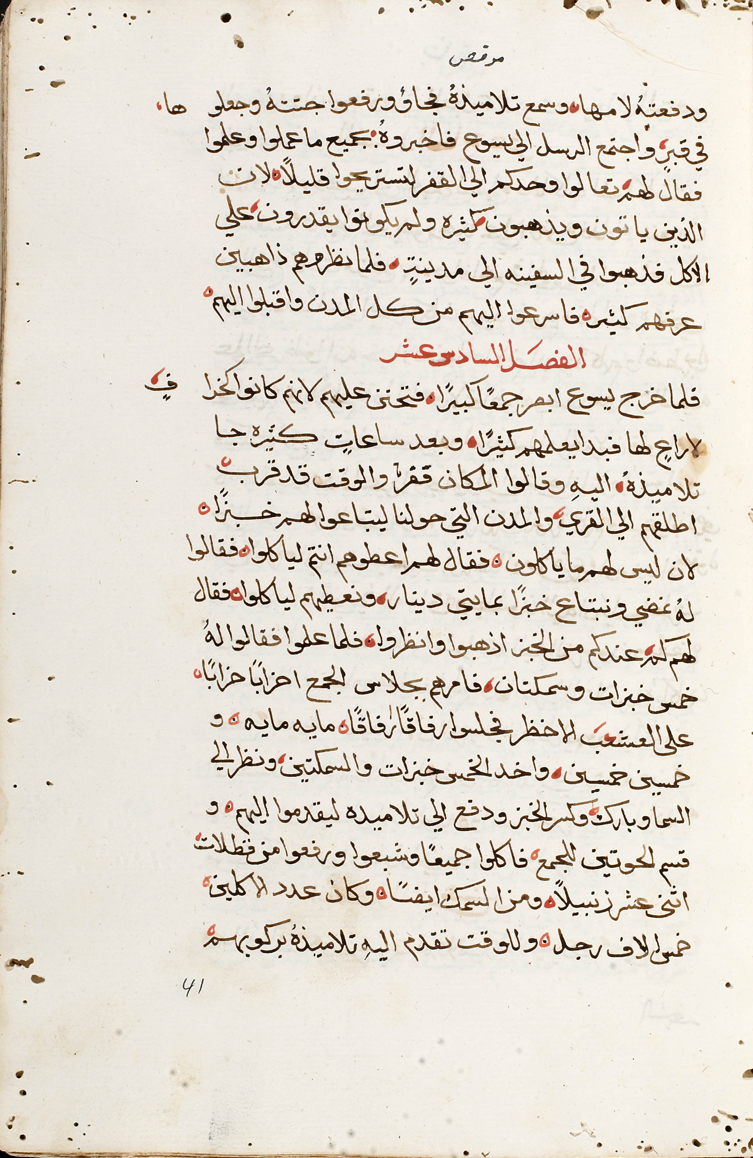 مرقص
ودفعته لامها وسمع تلاميذهُ فجاؤ ورفعوا جثتهُ وجعلو ها
في قبرٍ واجتمع الرسل الي يسوع فاخبروهُ بجميع ما عملوا وعلموا
فقال لهم تعالوا وحدكم الي القفر لتستريحوا قليلاً لان
الذين ياتون ويذهبون كثيره ولم يكونوا يقدرون علي
الاكل فذهبوا في السفينه الي مدينةٍ فلما نظروهم ذاهبين
عرفهم كثير فاسرعوا اليهم من كل المدن واقبلوا اليهم
الفصل السادس عشر
فلما خرج يسوع ابصر جمعًا كبيرًا فتحنن عليهم لانهم كانوا كخرا فٍ
لاراعٍ لها فبدا يعلمهم كثيرًا وبعد ساعاتٍ كثيرهٍ جا
تلاميذهُ اليهِ وقالوا المكان قفرٌ والوقت قد قرب
اطلقهم الي القري والمدن التي حولنا ليبتاعوا لهم خبزًا
لان ليس لهم ما ياكلون فقال لهم اعطوهم انتم لياكلوا فقالوا
لهُ نمضي ونبتاع خبزًا بمايتي دينار ونعطيهم لياكلوا فقال
لهم كم عندكم من الخبز اذهبوا وانظروا فلما علموا فقالوا لهُ
خمس خبزات وسمكتان فامرهم بجلاس الجمع احزابًا حزابًا
على العشب الاخظر فجلسوا رفاقًا رفاقًا مايه مايه و
خمسين خمسين واخد الخمس خبزات والسمكتين ونظر الي
السما وبارك وكسر الخبز ودفع الي تلاميده ليقدموا اليهم و
قسم الحوتين للجمع فاكلوا جميعًا وشبعوا ورفعوا من فظلات
اثنى عشر زنبيلاً ومن السمك ايضًا وكان عدد الاكلين
خمس الاف رجل وللوقت تقدم اليهِ تلاميذهُ بركوبهم
41